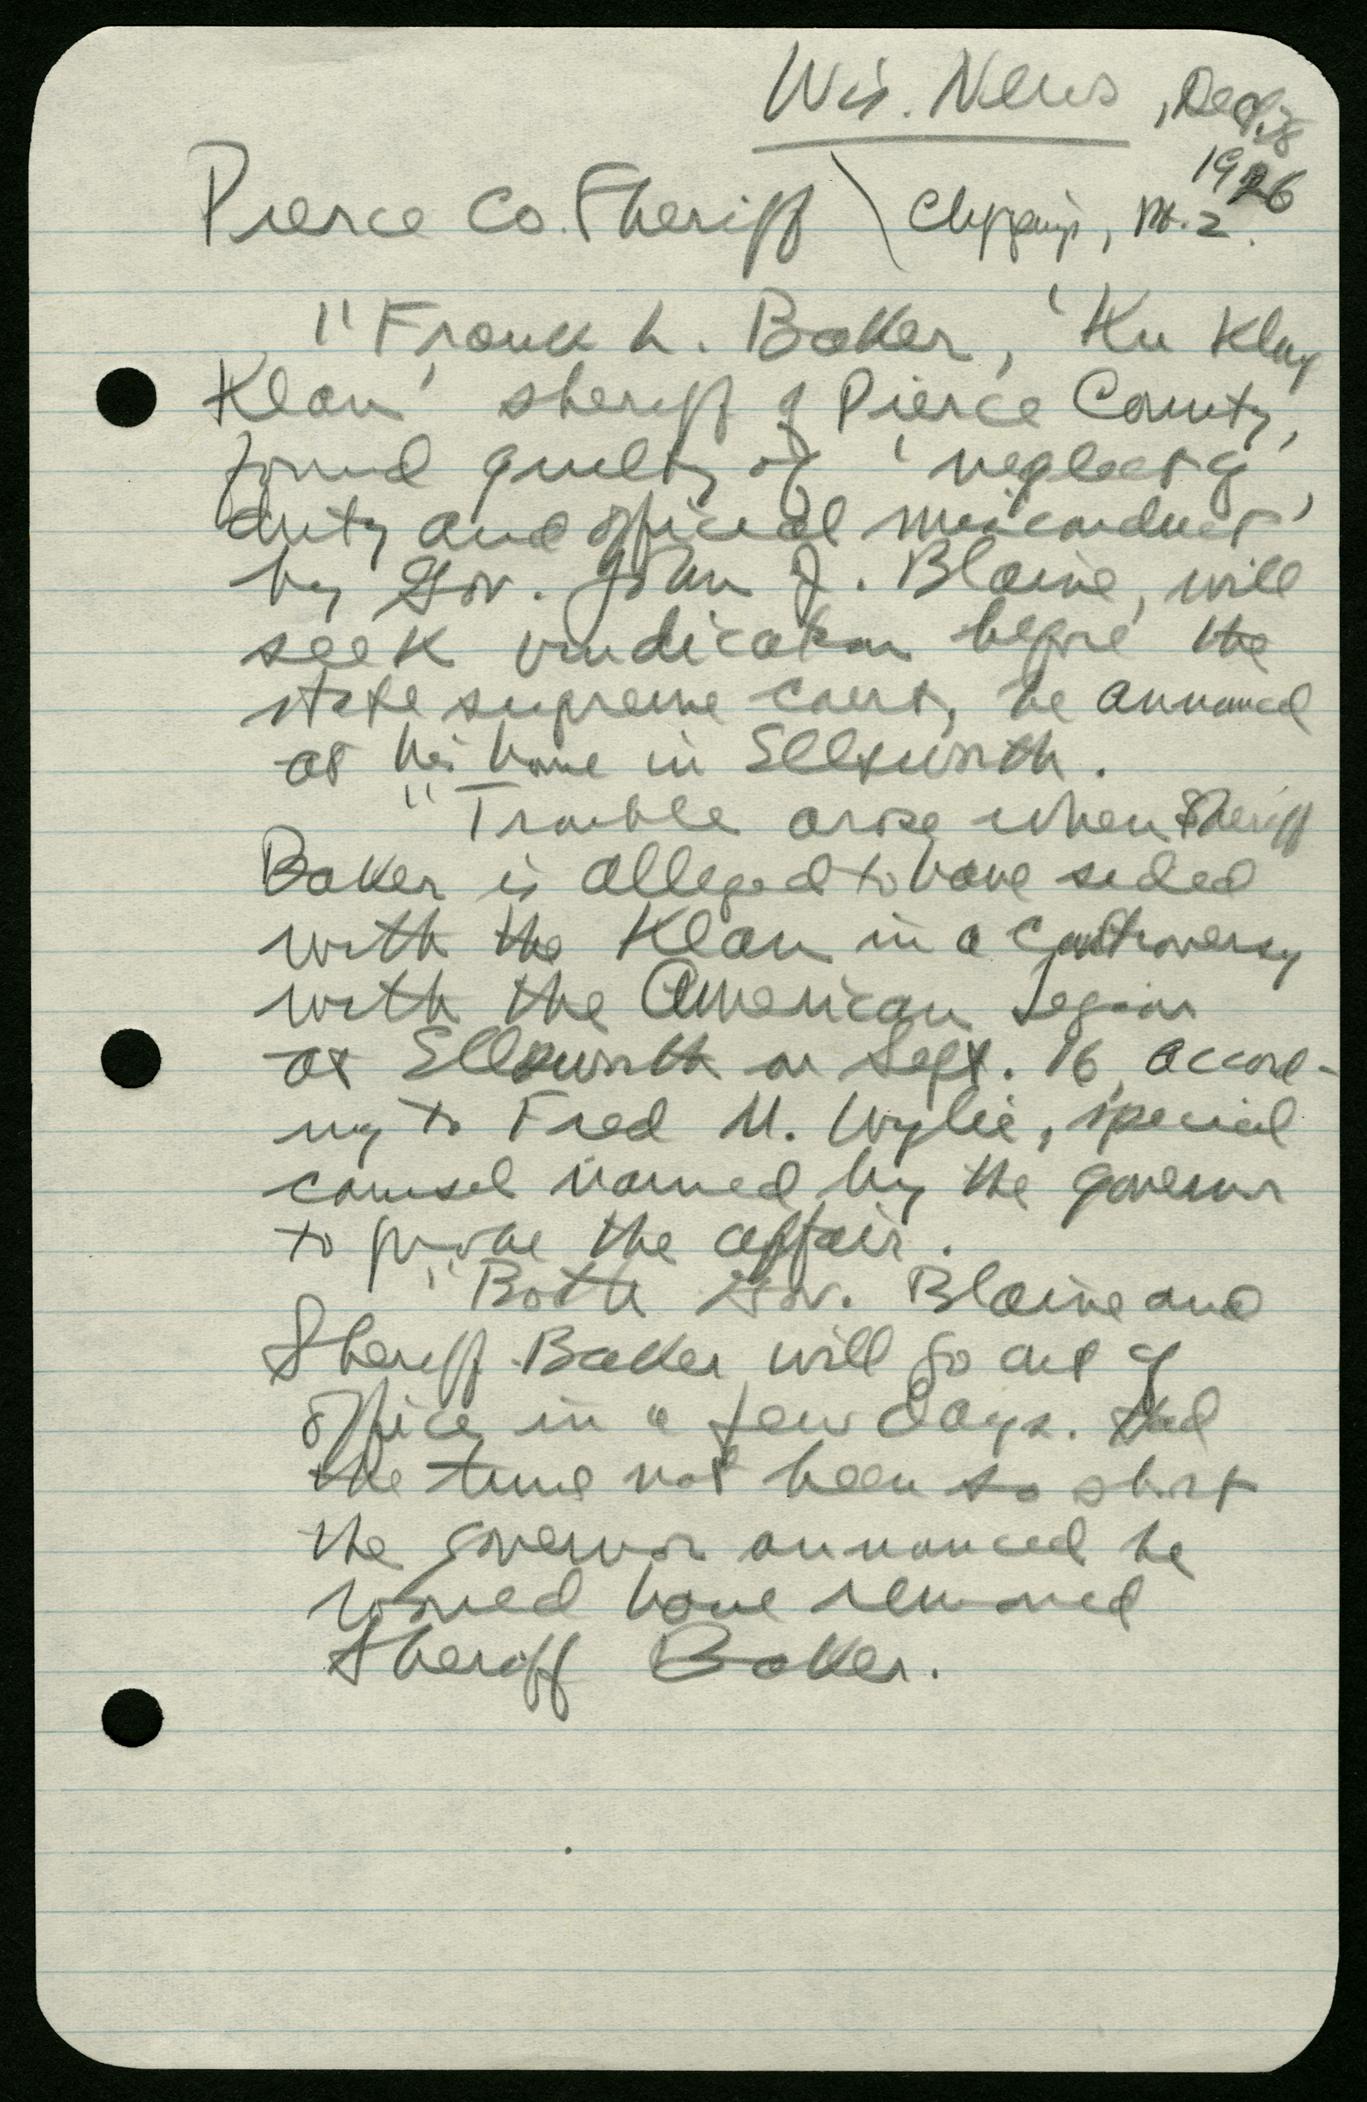 Wis. News, Dec. 28
1926
Pierce Co. Sheriff \ Clippings, pt. 2.
"Frank L. Baker, 'Ku Klux
Klan' sheriff of Pierce County,
found guilty of 'neglect of
duty and official misconduct'
by Gov. John J. Blaine, will
seek vindication before the
state supreme court, he announced
at his home in Ellsworth.
"Trouble arose when Sheriff
Baker is alleged to have sided
with the Klan in a controversy
with the American Legion
at Ellsworth on Sept. 16, accord-
ing to Fred M. Wylie, special
counsel named by the governor
to probe the affair.
"Both Gov. Blaine and
Sheriff Baker will go out of
office in a few days. Had
the time not been so short
the governor announced he
would have removed
Sheriff Baker.